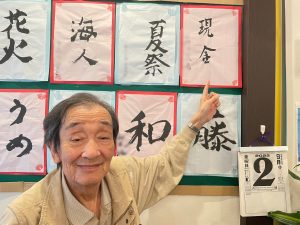 花火
海人
夏祭
現金
うめ
和
藤
2023
2